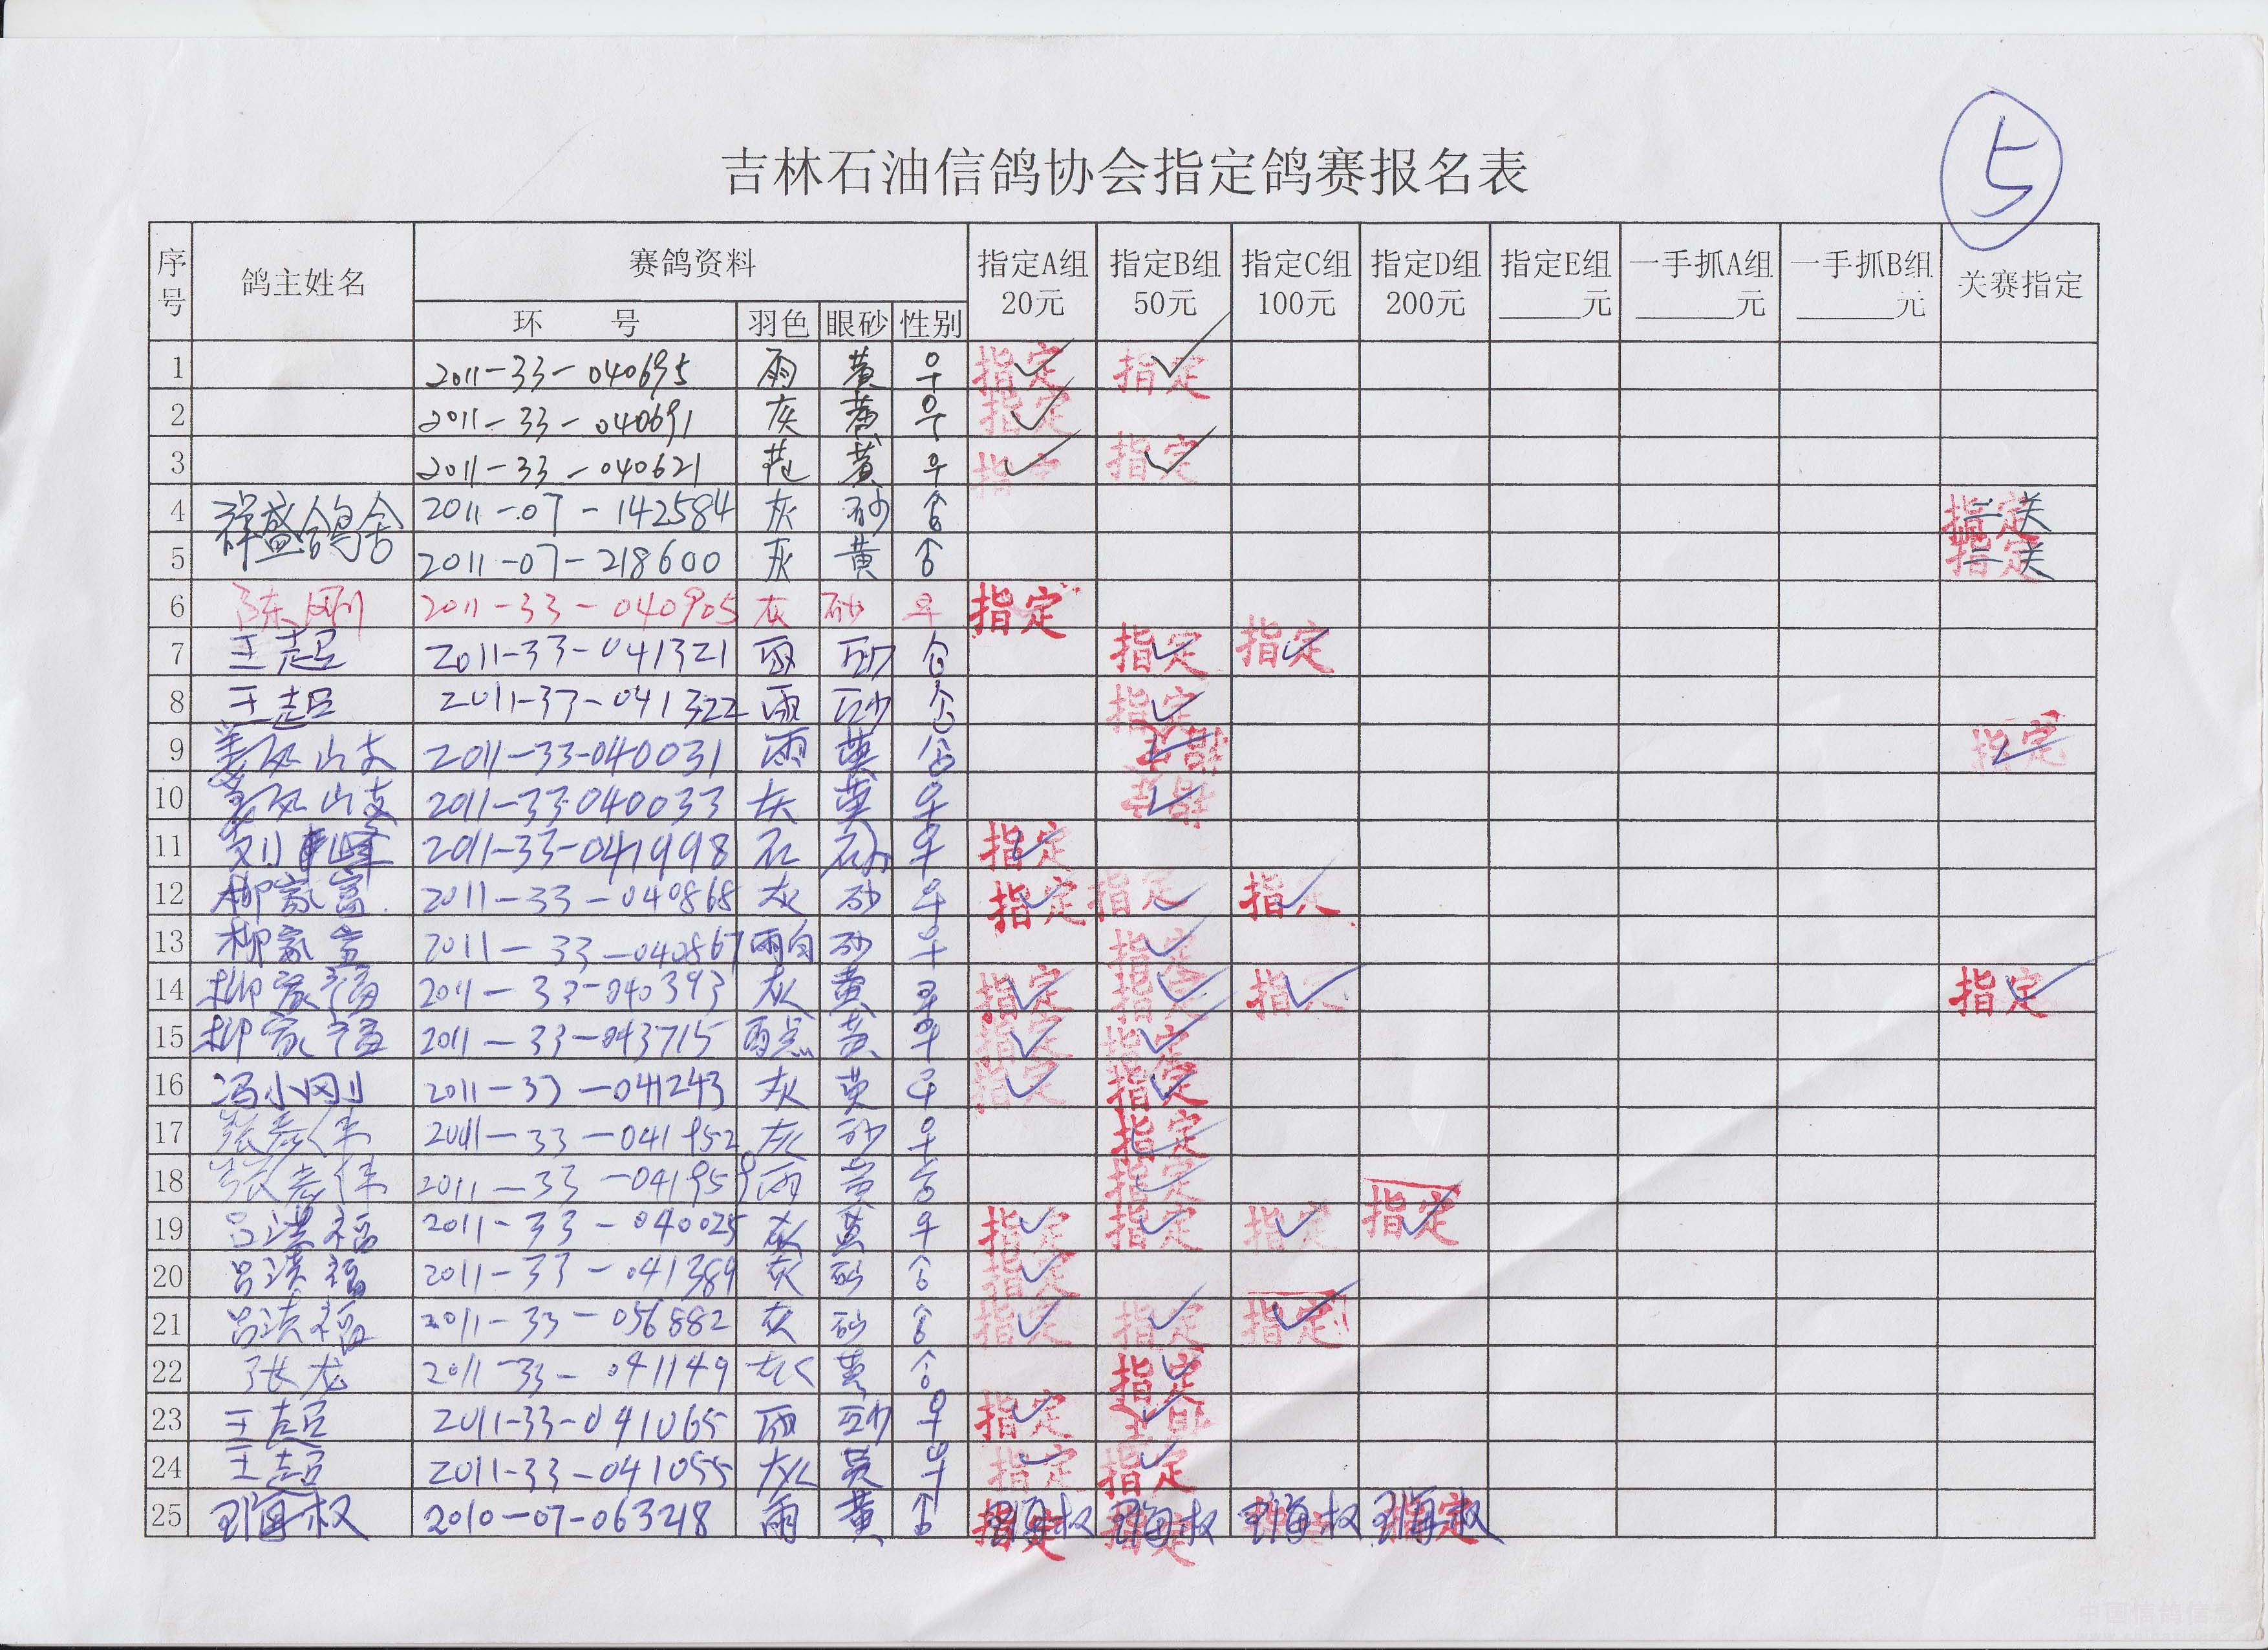 5
吉林石油信鸽协会指定鸽赛报名表
序号 鸽主姓名 赛鸽资料 指定A组 20元 指定B组 50元 指定C组 100元 指定D组 200元 指定E组 元 一手抓A组 元 一手抓B组 元 关赛指定
环 号 羽色 眼砂 性别
1 2011-33-040695 雨 黄 ♀ 指定 ✓ 指定 ✓
2 2011-33-040691 灰 黄 ♀ 指定 ✓
3 2011-33-040621 黄 ♀ 指定 ✓ 指定 ✓
4 祥盛鸽舍 2011-07-142584 灰 砂 指定 二关
5 2011-07-218600 灰 黄 指定 二关
6 陈刚 2011-33-040905 灰 砂 ♀ 指定
7 王超 2011-33-041321 雨 砂 指定 ✓ 指定 ✓
8 王超 2011-33-041322 雨 砂 指定 ✓
9 2011-33-040031 雨 黄 指定 ✓ 指定 ✓
10 2011-33-040033 灰 黄 ♀ 指定 ✓
11 2011-33-041998 石 砂 ♀ 指定 ✓
12 柳家富 2011-33-040868 灰 砂 ♀ 指定 ✓ 指定 ✓ 指定 ✓
13 柳家富 2011-33-040867 雨白 砂 ♀ 指定 ✓
14 柳家福 2011-33-040393 灰 黄 ♀ 指定 ✓ 指定 ✓ 指定 ✓ 指定 ✓
15 柳家福 2011-33-043715 雨点 黄 ♀ 指定 ✓ 指定 ✓
16 冯小刚 2011-33-041243 灰 黄 ♀ 指定 ✓ 指定 ✓
17 2011-33-041952 灰 砂 ♀ 指定 ✓
18 2011-33-041959 雨 黄 指定 ✓
19 吕洪福 2011-33-040025 灰 黄 ♀ 指定 ✓ 指定 ✓ 指定 ✓ 指定 ✓
20 吕洪福 2011-33-041389 灰 砂 指定 ✓
21 吕洪福 2011-33-056882 灰 砂 指定 ✓ 指定 ✓ 指定 ✓
22 张龙 2011-33-041149 灰 黄 指定 ✓
23 王超 2011-33-041065 雨 砂 ♀ 指定 ✓ 指定 ✓
24 王超 2011-33-041055 灰 黄 ♀ 指定 ✓ 指定 ✓
25 王海权 2010-07-063218 雨 黄 指定 王海权 指定 王海权 指定 王海权 指定 王海权